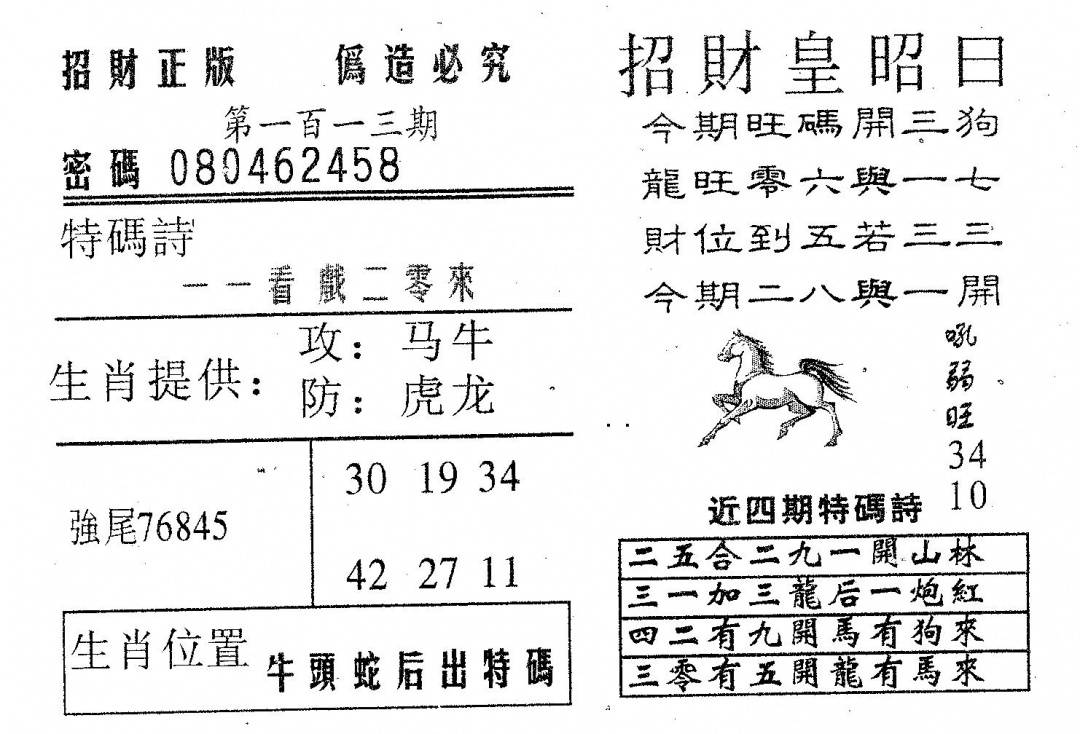 招財正版 僞造必究
第一百一三期
密碼 080462458
特碼詩
一一看戲二零來
生肖提供：
攻：马牛
防：虎龙
強尾76845
30 19 34
42 27 11
生肖位置
牛頭蛇后出特碼
招財皇昭曰
今期旺碼開三狗
龍旺零六與一七
財位到五若三三
今期二八與一開
吼
弱
旺
34
10
近四期特碼詩
二五合二九一開山林
三一加三龍后一炮紅
四二有九開馬有狗來
三零有五開龍有馬來